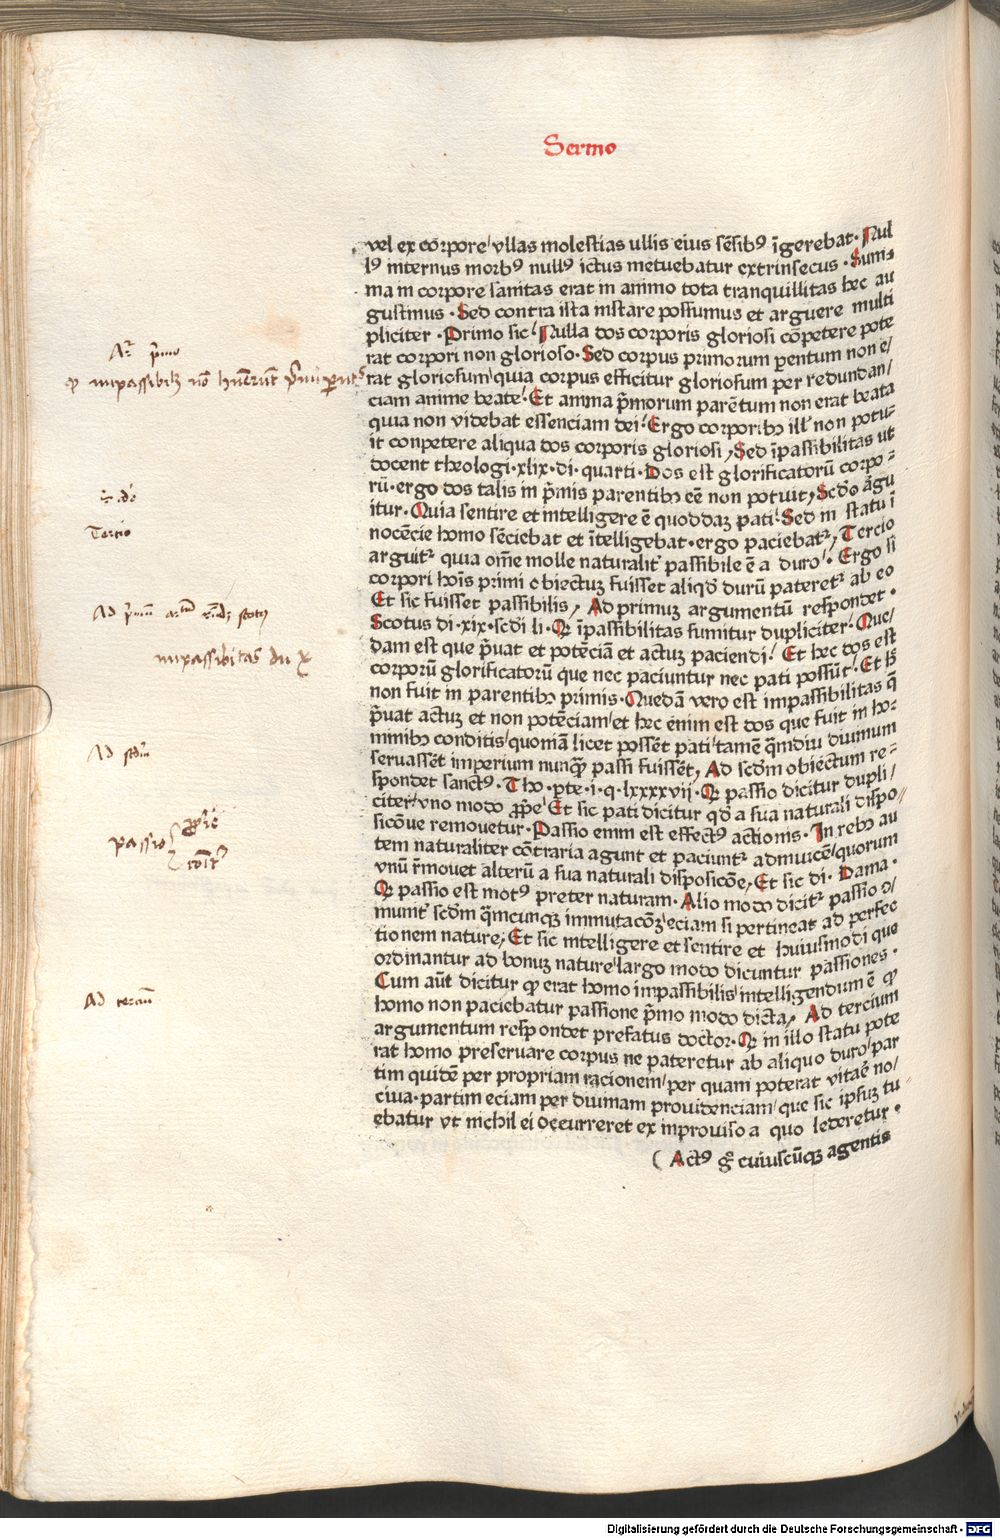 Sermo
vel ex corpore/ vllas molestias ullis eius sēsib⁹ īgerebat· Nul
l⁹ internus morb⁹ null⁹ ictus metuebatur extrinsecus · Sum⸗
ma in corpore sanitas erat in animo tota tranquillitas hec au
gustinus · Sed contra ista instare possumus et arguere multi
pliciter · Primo sic/ Nulla dos corporis gloriosi cōpetere pote
rat corpori non glorioso· Sed corpus primorum parentum non e/
rat gloriosum/ quia corpus efficitur gloriosum per redundan/
ciam anime beate· Et anima p̄morum parētum non erat beata
quia non videbat essenciam dei· Ergo corporibꝫ ill' non potu⸗
it conpetere aliqua dos corporis gloriosi/ Sed īpassibilitas ut
docent theologi·xlix·di·quarti· Dos est glorificatorū corpo⸗
rū·ergo dos talis in p̄mis parentibꝫ eē non potuit/ Scdo argu
itur· Quia sentire et intelligere ē quoddaꝫ pati· Sed in statu ī
nocēcie homo sēciebat et ītelligebat·ergo paciebatꝛ/ Tercio
arguitꝛ quia om̄e molle naturalit' passibile ē a duro· Ergo si
corpori hōis primi obiectuꝫ fuisset aliqd' durū pateretꝛ ab eo
Et sic fuisset passibilis/ Ad primuꝫ argumentū respondet ·
Scotus di·xix·scdi li· Qꝫ īpassibilitas sumitur dupliciter· Que/
dam est que p̄uat et potēciā et actuꝫ paciendi· Et hec dos est
corporū glorificatorū que nec paciuntur nec pati possūt· Et h'
non fuit in parentibꝫ primis· Quedā vero est impassibilitas q̄
p̄uat actuꝫ et non potēciam/ et hec enim est dos que fuit in ho⸗
minibꝫ conditis/ quoniā licet possēt pati/ tamē q̄mdiu diuinum
seruassēt imperium nunꝙ passi fuissēt/ Ad scdm obiectum re⸗
spondet sanct⁹· Tho·pte·i·q·lxxxxvii· Qꝫ passio dicitur dupli/
citer/ vno modo ꝓpe/ Et sic pati dicitur qd' a sua naturali dispo⸗
sicōue remouetur· Passio enim est effect⁹ actionis· In rebꝫ au
tem naturaliter cōtraria agunt et paciuntꝛ adinuicē/ quorum
vnū r̄mouet alterū a sua naturali disposicōe/ Et sic di· Dama·
Qꝫ passio est mot⁹ preter naturam· Alio modo dicitꝛ passio ɔ/
munit' scdm q̄mcunqꝫ immutacōꝫ/ eciam si pertineat ad perfec
tionem nature/ Et sic intelligere et sentire et huiusmodi que
ordinantur ad bonuꝫ nature/ largo modo dicuntur passiones·
Cum aūt dicitur ꝙ erat homo impassibilis/ intelligendum ē ꝙ
homo non paciebatur passione p̄mo modo dicta/ Ad tercium
argumentum respondet prefatus doctor· Qꝫ in illo statu pote
rat homo preseruare corpus ne pateretur ab aliquo duro/ par
tim quidē per propriam racionem/ per quam poterat vitare no/
ciua·partim eciam per diuinam prouidenciam/ que sic ipsuꝫ tu⸗
ebatur vt nichil ei occurreret ex inprouiso a quo lederetur·
( Act⁹ gͦ cuiuscūqꝫ agentis
Tercio
Ad scdm
passio
Ad terciū
Digitalisierung gefördert durch die Deutsche Forschungsgemeinschaft · DFG